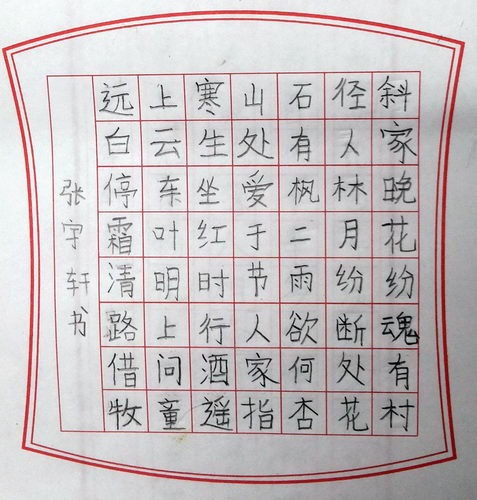 远上寒山石径斜
白云生处有人家
停车坐爱枫林晚
霜叶红于二月花
清明时节雨纷纷
路上行人欲断魂
借问酒家何处有
牧童遥指杏花村
张宇轩书